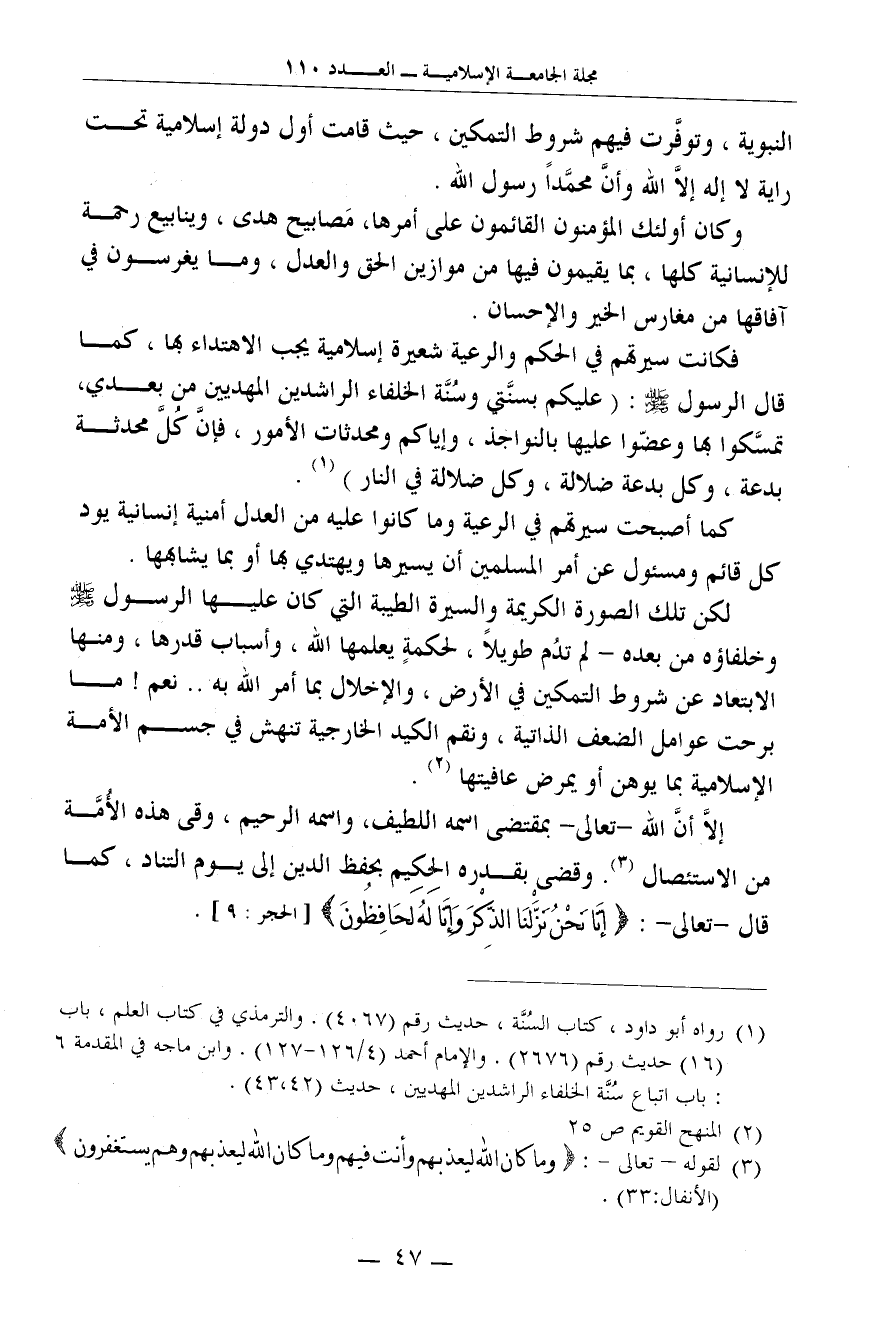 مجلة الجامعة الإسلامية – العدد ١١٠
النبوية ، وتوفَّرت فيهم شروط التمكين ، حيث قامت أول دولة إسلامية تحت
راية لا إله إلاَّ الله وأنَّ محمَّداً رسول الله .
وكان أولئك المؤمنون القائمون على أمرها، مَصابيح هدى ، وينابيع رحمة
للإنسانية كلها ، بما يقيمون فيها من موازين الحق والعدل ، وما يغرسون في
آفاقها من مغارس الخير والإحسان .
فكانت سيرتهم في الحكم والرعية شعيرة إسلامية يجب الاهتداء بها ، كما
قال الرسول ﷺ : ( عليكم بسنَّتي وسُنَّة الخلفاء الراشدين المهديين من بعدي،
تمسَّكوا بها وعضّوا عليها بالنواجذ ، وإياكم ومحدثات الأمور ، فإنَّ كُلَّ محدثة
بدعة ، وكل بدعة ضلالة ، وكل ضلالة في النار ) (١) .
كما أصبحت سيرتهم في الرعية وما كانوا عليه من العدل أمنية إنسانية يود
كل قائم ومسئول عن أمر المسلمين أن يسيرها ويهتدي بها أو بما يشابهها .
لكن تلك الصورة الكريمة والسيرة الطيبة التي كان عليها الرسول ﷺ
وخلفاؤه من بعده – لم تدُم طويلاً ، لحكمةٍ يعلمها الله ، وأسباب قدرها ، ومنها
الابتعاد عن شروط التمكين في الأرض ، والإخلال بما أمر الله به .. نعم ! ما
برحت عوامل الضعف الذاتية ، ونقم الكيد الخارجية تنهش في جسم الأمة
الإسلامية بما يوهن أو يمرض عافيتها (٢) .
إلاَّ أنَّ الله –تعالى– بمقتضى اسمه اللطيف، واسمه الرحيم ، وقى هذه الأُمَّة
من الاستئصال (٣). وقضى بقدره الحكيم بحفظ الدين إلى يوم التناد ، كما
قال –تعالى– : ﴿ إِنَّا نَحْنُ نَزَّلْنَا الذِّكْرَ وَإِنَّا لَهُ لَحَافِظُونَ ﴾ [ الحجر : ٩ ] .
(١) رواه أبو داود ، كتاب السُنَّة ، حديث رقم (٤٠٦٧) . والترمذي في كتاب العلم ، باب
(١٦) حديث رقم (٢٦٧٦) . والإمام أحمد (١٢٦/٤–١٢٧) . وابن ماجه في المقدمة ٦
: باب اتباع سُنَّة الخلفاء الراشدين المهديين ، حديث (٤٣،٤٢) .
(٢) المنهج القويم ص ٢٥
(٣) لقوله – تعالى – : ﴿ وما كان الله ليعذبهم وأنت فيهم وما كان الله ليعذبهم وهم يستغفرون ﴾
(الأنفال:٣٣) .
– ٤٧ –